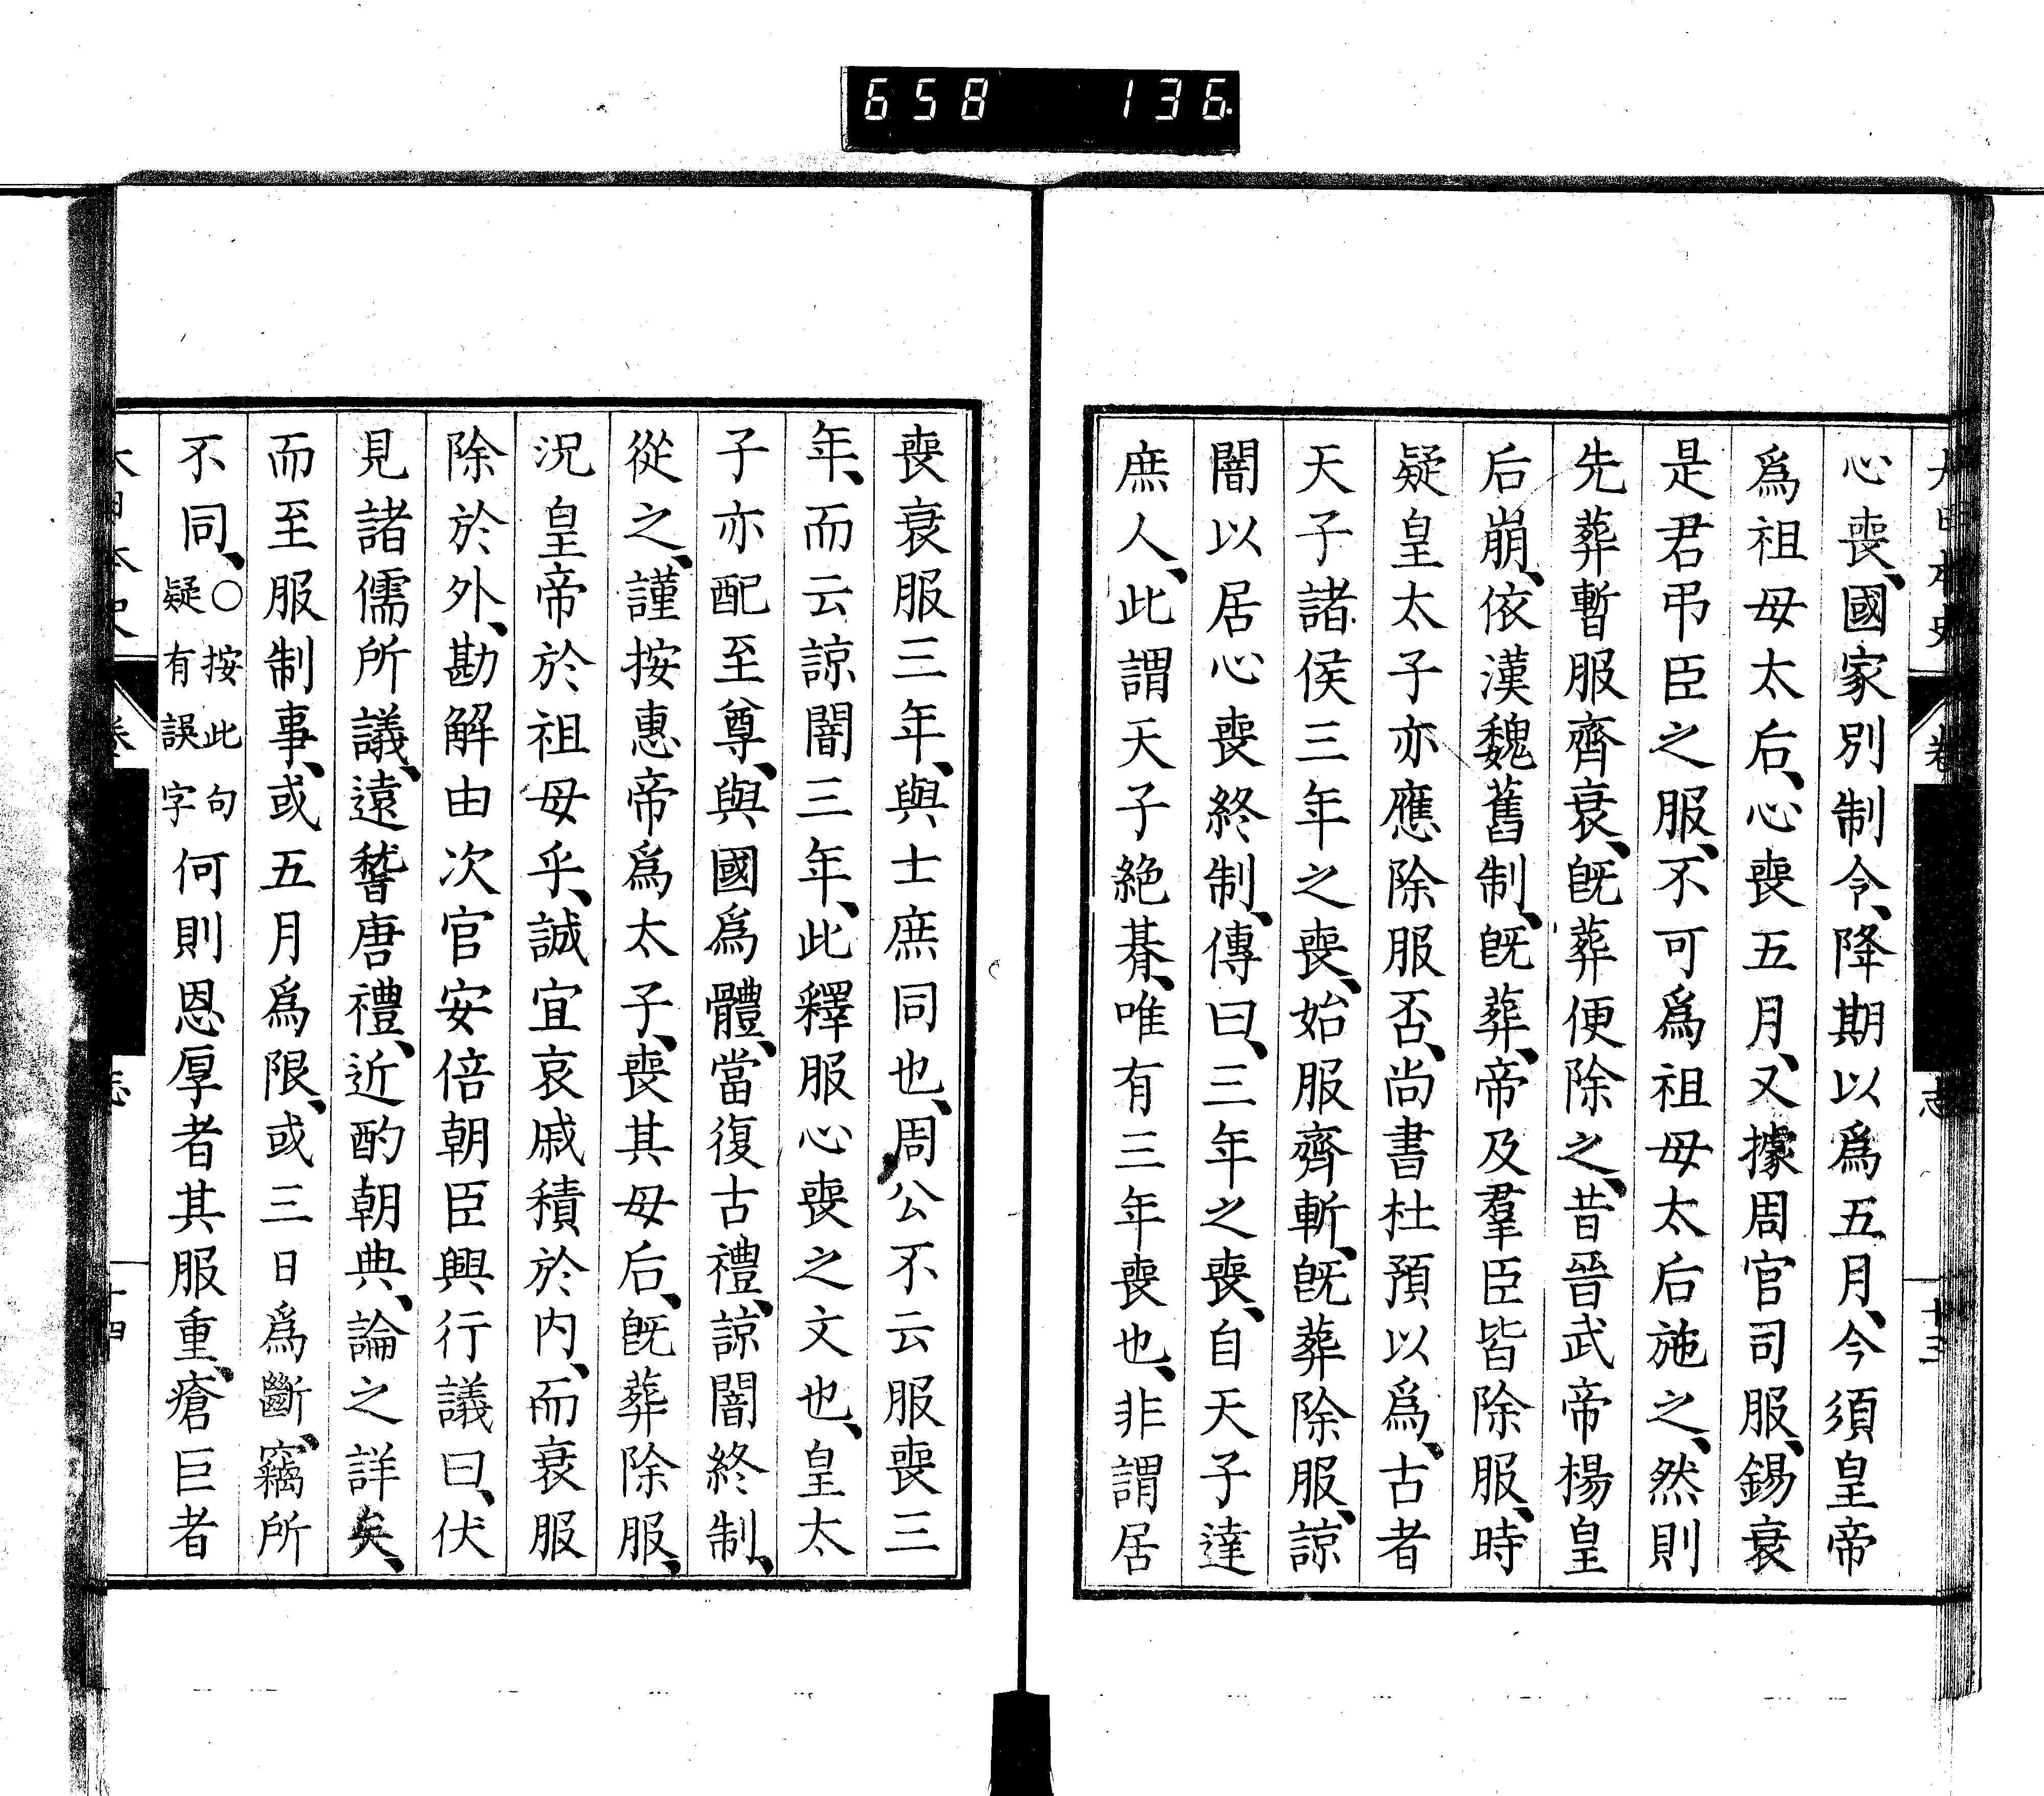 658 136
心喪、國家別制令、降期以爲五月、今須皇帝
爲祖母太后、心喪五月、又據周官司服、錫衰
是君弔臣之服、不可爲祖母太后施之、然則
先葬暫服齊衰、既葬便除之、昔晉武帝楊皇
后崩、依漢魏舊制、既葬、帝及羣臣皆除服、時
疑皇太子亦應除服否、尚書杜預以爲、古者
天子諸侯三年之喪、始服齊斬、既葬除服、諒
闇以居心喪終制、傳曰、三年之喪、自天子達
庶人、此謂天子絶朞、唯有三年喪也、非謂居
喪衰服三年、與士庶同也、周公不云服喪三
年、而云諒闇三年、此釋服心喪之文也、皇太
子亦配至尊、與國爲體、當復古禮、諒闇終制、
從之、謹按惠帝爲太子、喪其母后、既葬除服、
況皇帝於祖母乎、誠宜哀戚積於内、而衰服
除於外、勘解由次官安倍朝臣興行議曰、伏
見諸儒所議、遠稽唐禮、近酌朝典、論之詳矣、
而至服制事、或五月爲限、或三日爲斷、竊所
不同、○按此句疑有誤字何則恩厚者其服重、瘡巨者